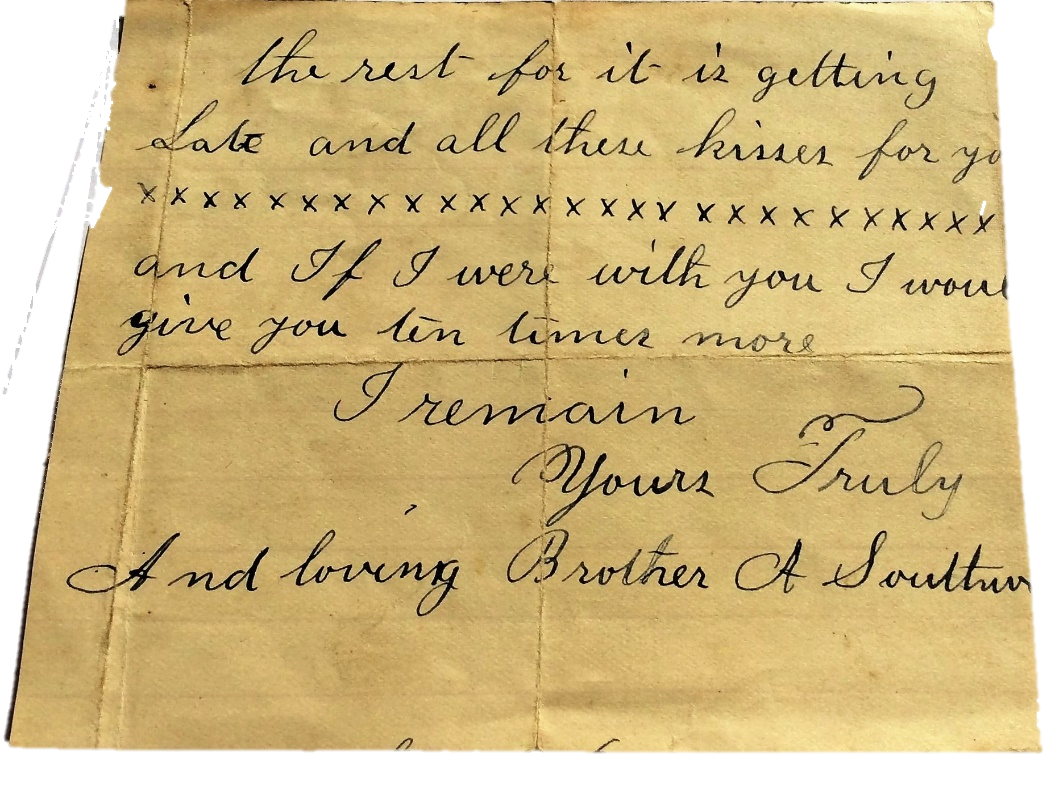 the rest for it is getting
Late and all these kisses for yo
x x x x x x x x x x x x x x x x x x x x x x x x x x x
and If I were with you I woul
give you ten times more
I remain
Yours Truly
And loving Brother A Southw